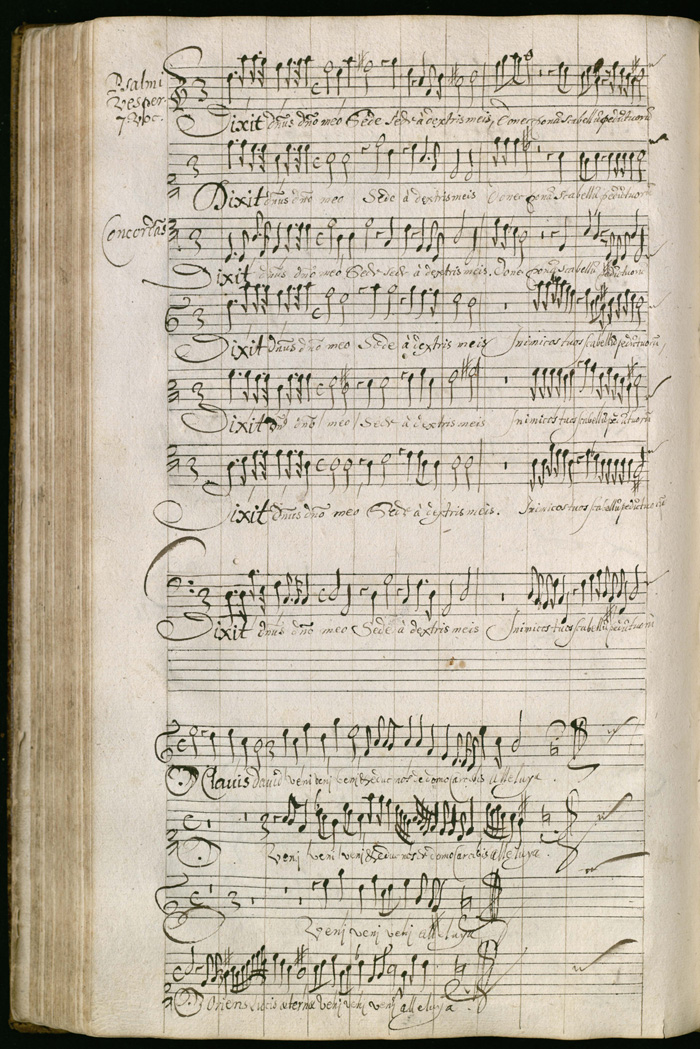 Psalmi
Vesper.
7 Voc.
Dixit dnus dno meo Sede Sede à dextris meis, Donec ponā scabellū pedū tuorū
Dixit dnus dno meo Sede à dextris meis Donec ponā scabellū pedū tuorū
Dixit dnus dno meo Sede sede à dextris meis. Donec ponā scabellū pedū tuorū
Dixit dnus dno meo Sede à dextris meis Inimicos tuos scabellū pedū tuorū,
Dixit dno meo Sede à dextris meis Inimicos tuos scabellū pedū tuorū
Dixit dnus dno meo Sede à dextris meis. Inimicos tuos scabellū pedū tuorū
Dixit dnus dno meo Sede à dextris meis Inimicos tuos scabellū pedū tuorū
O Clavis David veni veni veni & educ nos de domo carceris alleluya.
O. Veni veni veni & educ nos de domo carceris alleluya.
O Veni veni veni alleluya
O Oriens lucis æternæ veni veni veni alleluya.